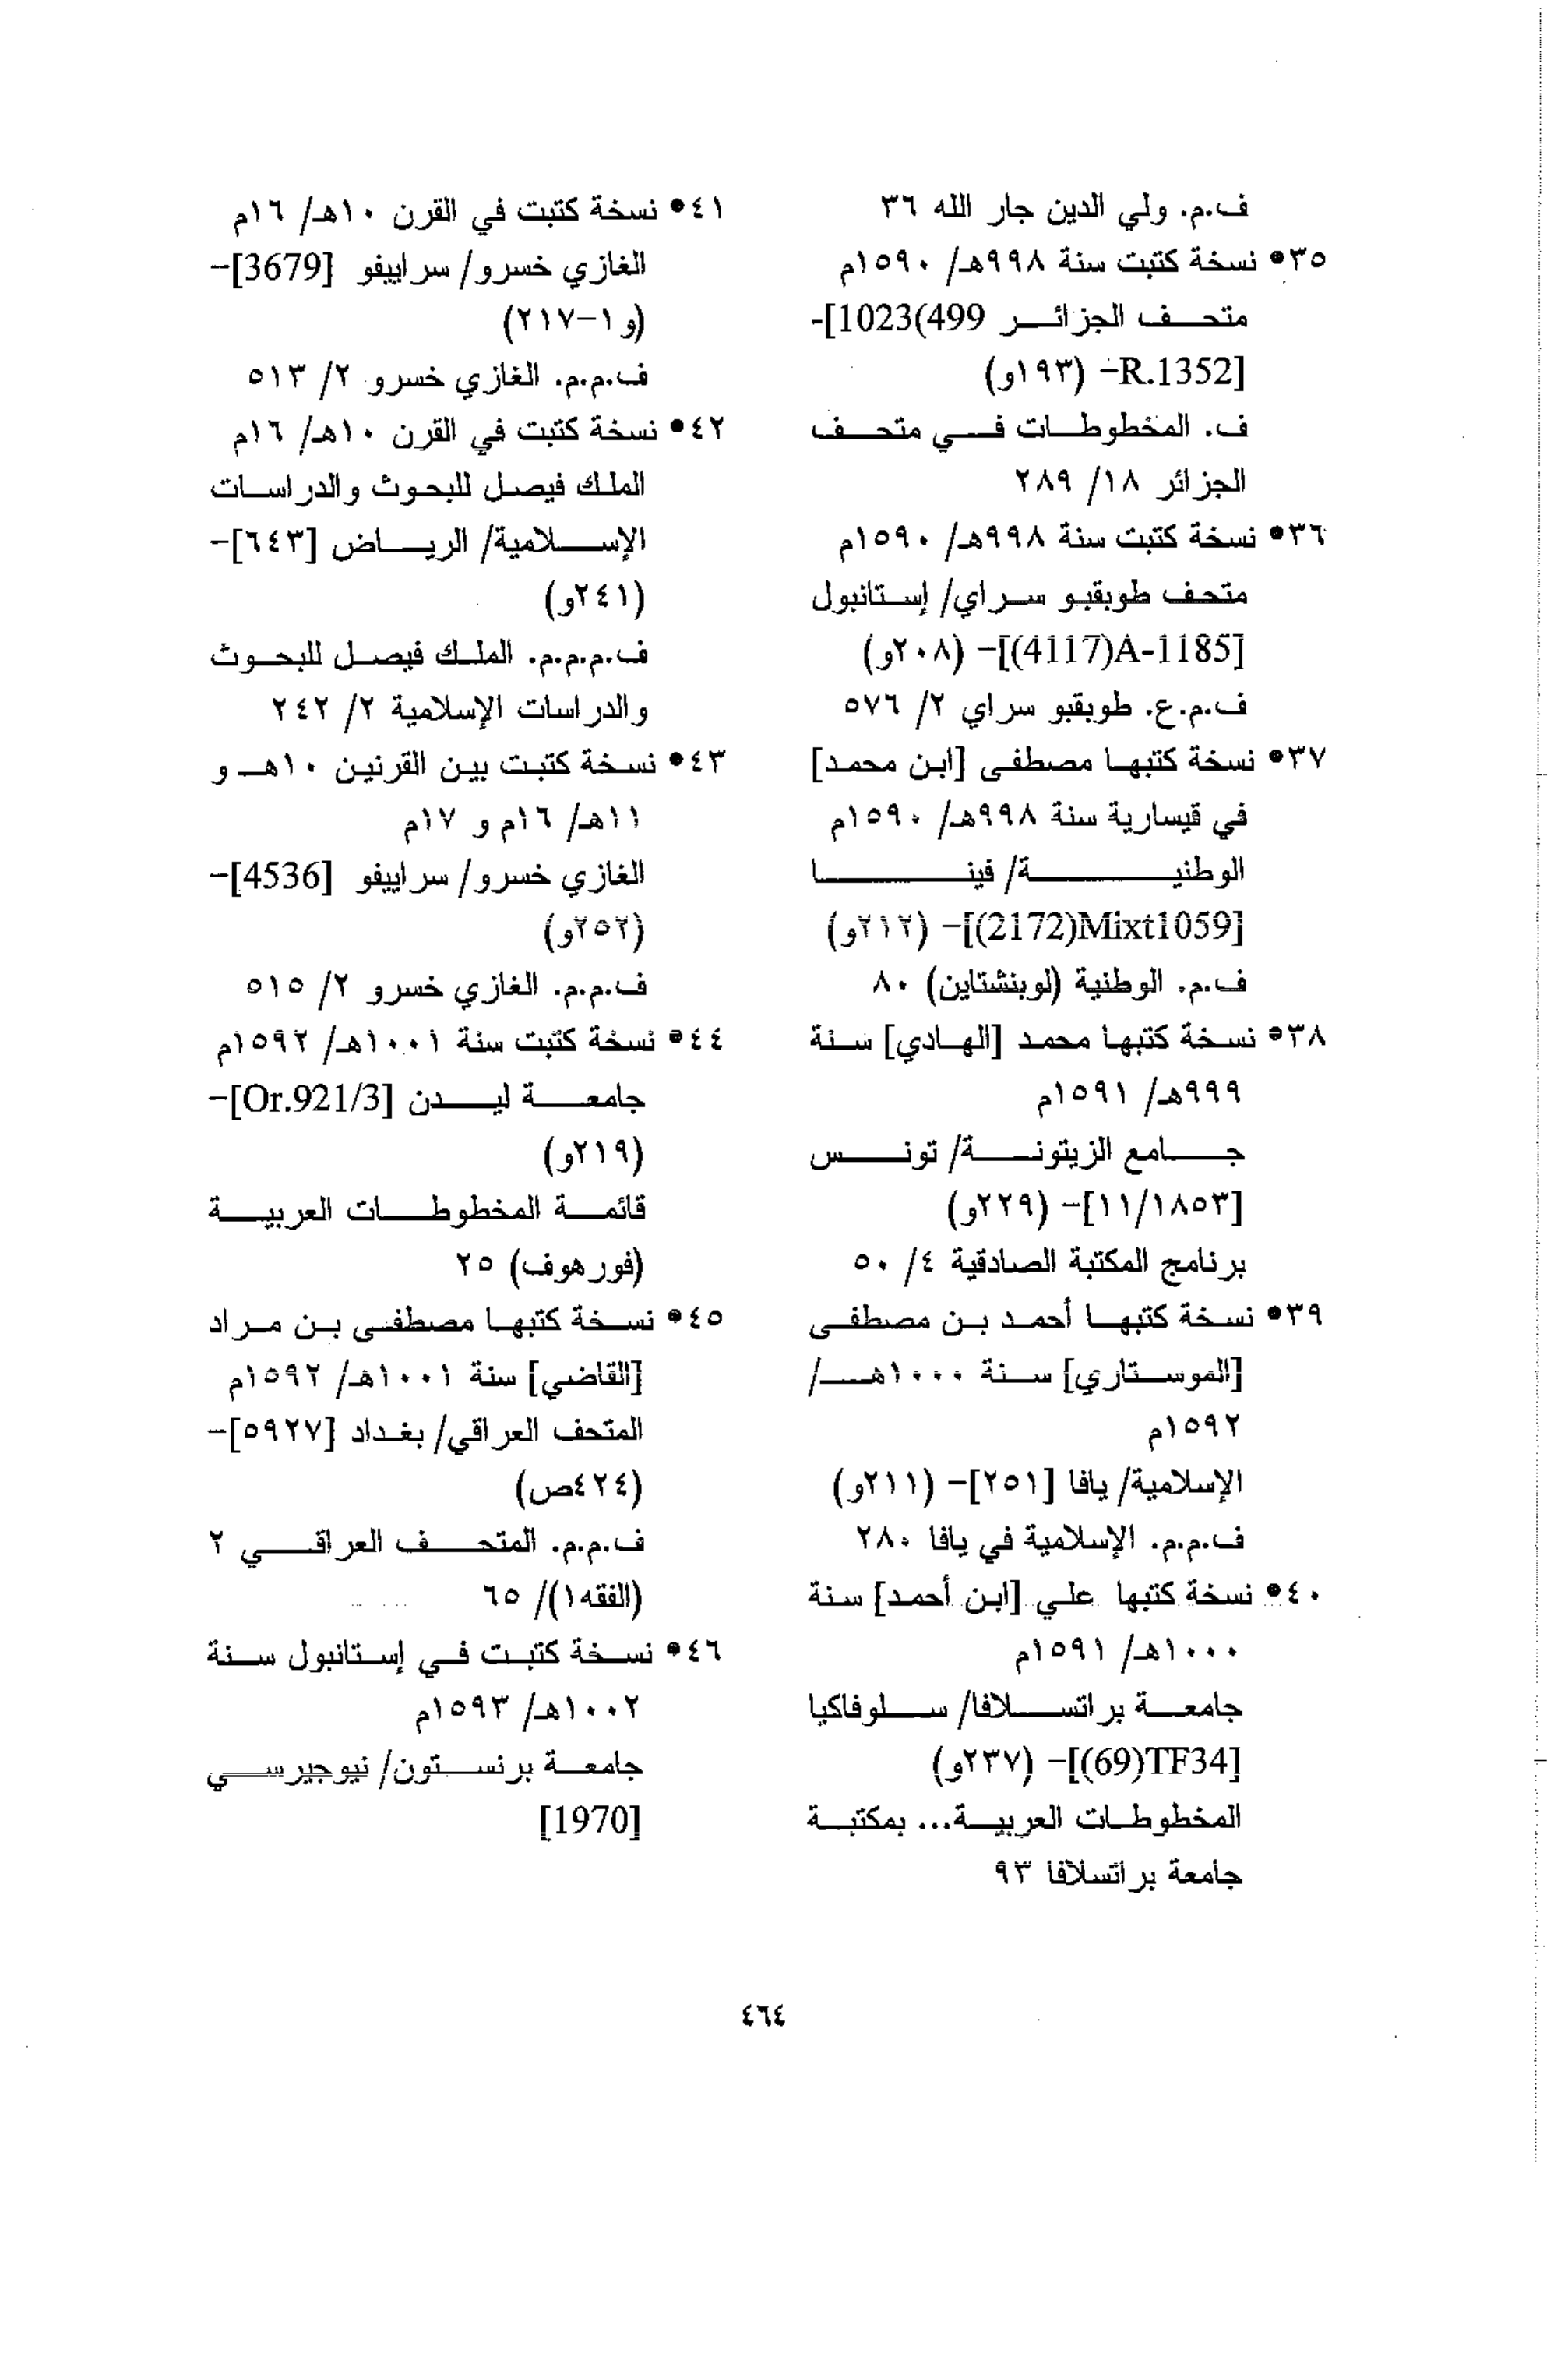 ف.م. ولي الدين جار الله ٣٦
٣٥• نسخة كتبت سنة ٩٩٨هـ/ ١٥٩٠م
متحف الجزائر 499)1023]-
[R.1352- (١٩٣و)
ف. المخطوطات في متحف
الجزائر ١٨/ ٢٨٩
٣٦• نسخة كتبت سنة ٩٩٨هـ/ ١٥٩٠م
متحف طوبقبو سراي/ إستانبول
[4117)A-1185)]- (٢٠٨و)
ف.م.ع. طوبقبو سراي ٢/ ٥٧٦
٣٧• نسخة كتبها مصطفى [ابن محمد]
في قيسارية سنة ٩٩٨هـ/ ١٥٩٠م
الوطنية/ فينا
[2172)Mixt1059)]- (٢١٢و)
ف.م. الوطنية (لوبنشتاين) ٨٠
٣٨• نسخة كتبها محمد [الهادي] سنة
٩٩٩هـ/ ١٥٩١م
جامع الزيتونة/ تونس
[١١/١٨٥٣]- (٢٢٩و)
برنامج المكتبة الصادقية ٤/ ٥٠
٣٩• نسخة كتبها أحمد بن مصطفى
[الموستاري] سنة ١٠٠٠هـ/
١٥٩٢م
الإسلامية/ يافا [٢٥١]- (٢١١و)
ف.م.م. الإسلامية في يافا ٢٨٠
٤٠• نسخة كتبها علي [ابن أحمد] سنة
١٠٠٠هـ/ ١٥٩١م
جامعة براتسلافا/ سلوفاكيا
[69)TF34)]- (٢٣٧و)
المخطوطات العربية... بمكتبة
جامعة براتسلافا ٩٣
٤١• نسخة كتبت في القرن ١٠هـ/ ١٦م
الغازي خسرو/ سراييفو [3679]-
(و١-٢١٧)
ف.م.م. الغازي خسرو ٢/ ٥١٣
٤٢• نسخة كتبت في القرن ١٠هـ/ ١٦م
الملك فيصل للبحوث والدراسات
الإسلامية/ الرياض [٦٤٣]-
(٢٤١و)
ف.م.م.م. الملك فيصل للبحوث
والدراسات الإسلامية ٢/ ٢٤٢
٤٣• نسخة كتبت بين القرنين ١٠هـ و
١١هـ/ ١٦م و ١٧م
الغازي خسرو/ سراييفو [4536]-
(٢٥٢و)
ف.م.م. الغازي خسرو ٢/ ٥١٥
٤٤• نسخة كتبت سنة ١٠٠١هـ/ ١٥٩٢م
جامعة ليدن [Or.921/3]-
(٢١٩و)
قائمة المخطوطات العربية
(فورهوف) ٢٥
٤٥• نسخة كتبها مصطفى بن مراد
[القاضي] سنة ١٠٠١هـ/ ١٥٩٢م
المتحف العراقي/ بغداد [٥٩٢٧]-
(٤٢٤ص)
ف.م.م. المتحف العراقي ٢
(الفقه١)/ ٦٥
٤٦• نسخة كتبت في إستانبول سنة
١٠٠٢هـ/ ١٥٩٣م
جامعة برنستون/ نيوجيرسي
[1970]
٤٦٤